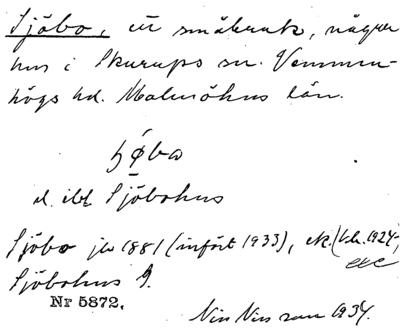 Sjöbo, ett småbruk, några
hus i Skurups sn. Vemmen-
högs hd. Malmöhus län.
d. ibl Sjöbohus
Sjöbo jb 1881 (infört 1933), ek. (bl. 1924-,
etc
Sjöbohus G.
Nr 5872.
1934.